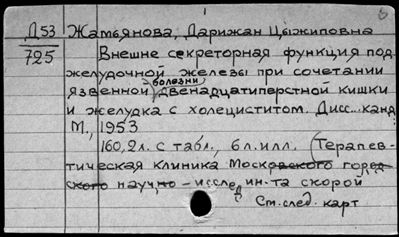 Д53 Жамьянова, Дарижан Цыжиповна
725 Внешне секреторная функция под
желудочной железы при сочетании
язвенной болезни двенадцатиперстной кишки
и желудка с холециститом. Дисс. канд
М., 1953
160,2л. с табл., 6л. илл. (Терапев-
тическая клиника Московского город
ского научно-исслед ин-та скорой
См. след. карт